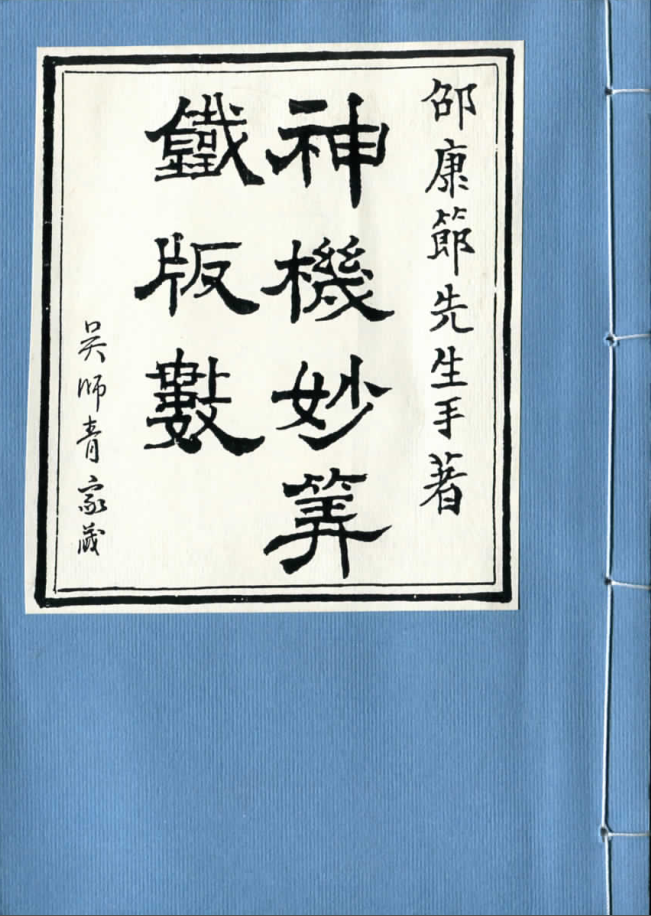 邵康節先生手著
神機妙筭
鐵版數
吳師青家藏